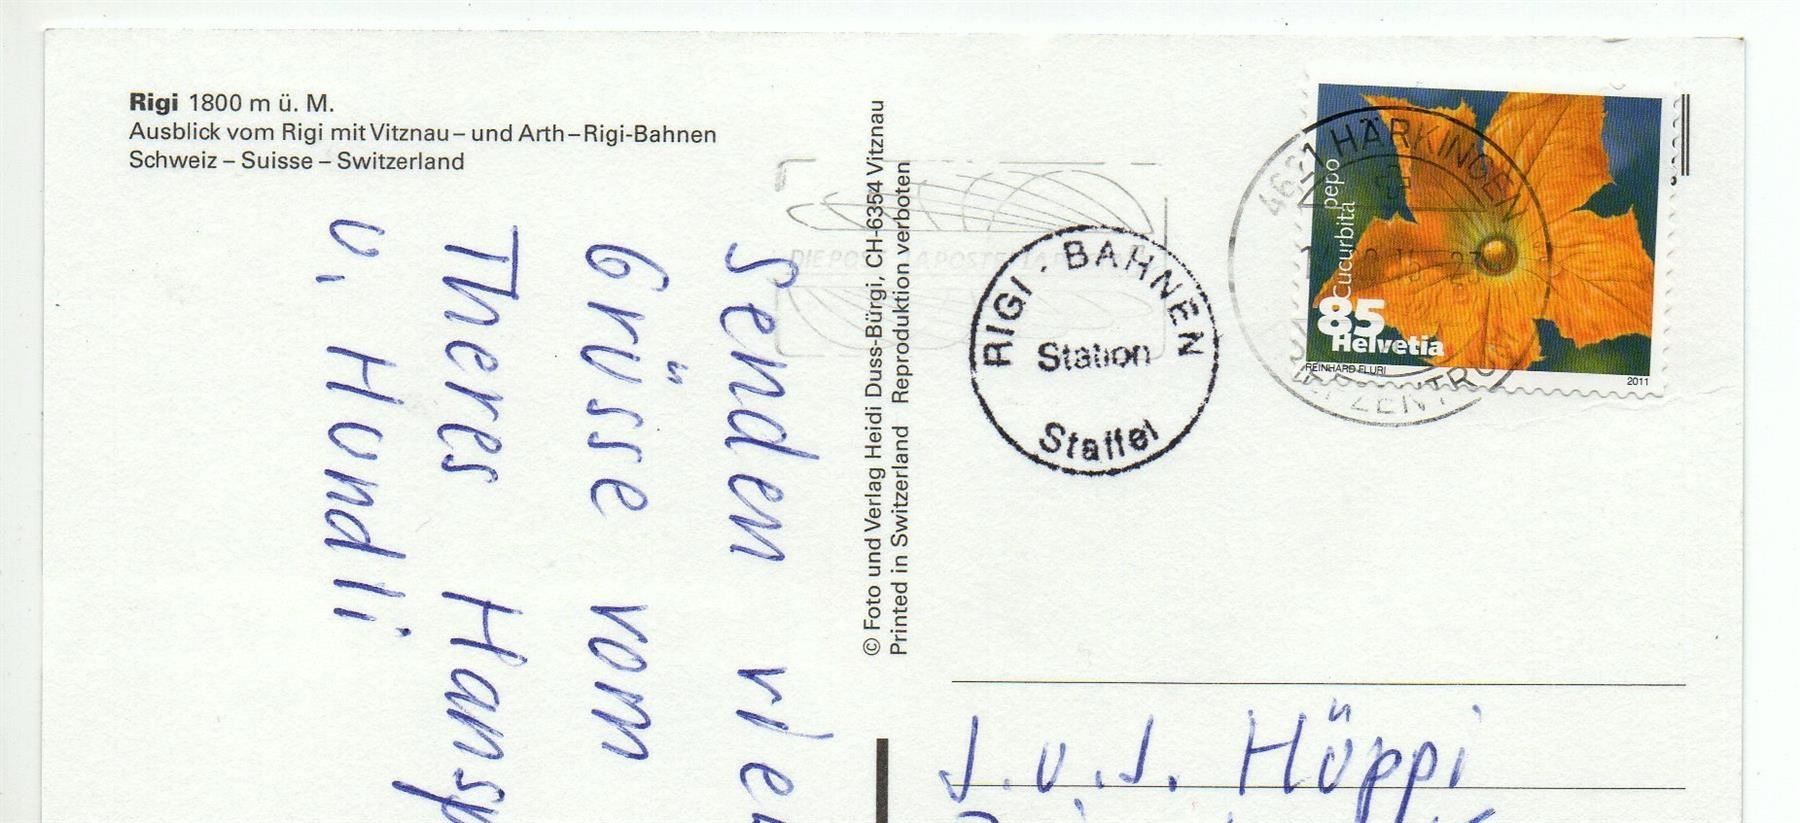 Rigi 1800 m ü. M.
Ausblick vom Rigi mit Vitznau – und Arth – Rigi-Bahnen
Schweiz – Suisse – Switzerland
Senden
Grüsse vom
Theres
u. Hundli
© Foto und Verlag Heidi Duss-Bürgi, CH-6354 Vitznau
Printed in Switzerland Reproduktion verboten
DIE POST LA POSTE
RIGI - BAHNEN
Station
Staffel
4621 HÄRKINGEN
Cucurbita pepo
85
Helvetia
REINHARD FLURI
2011
J. u. J. Hüppi